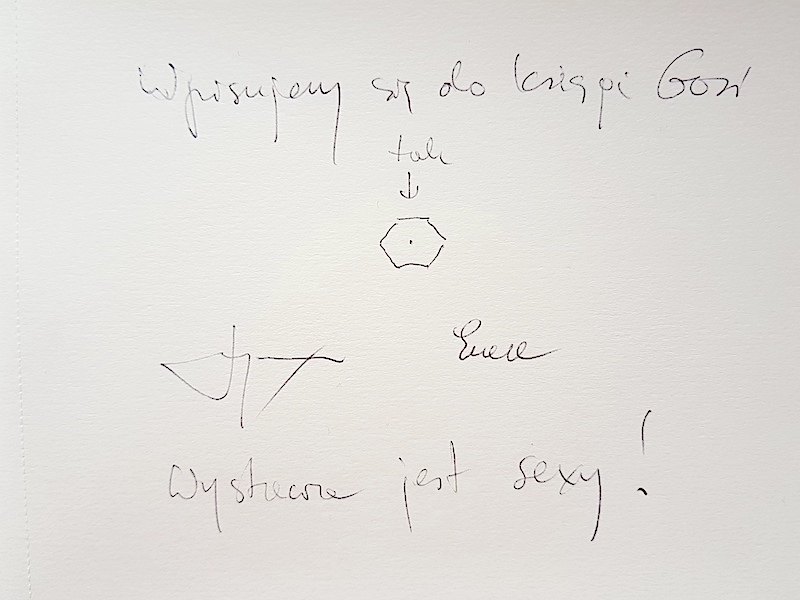 Wpisujemy się do księgi Gosi
tak
Wystawa jest sexy!